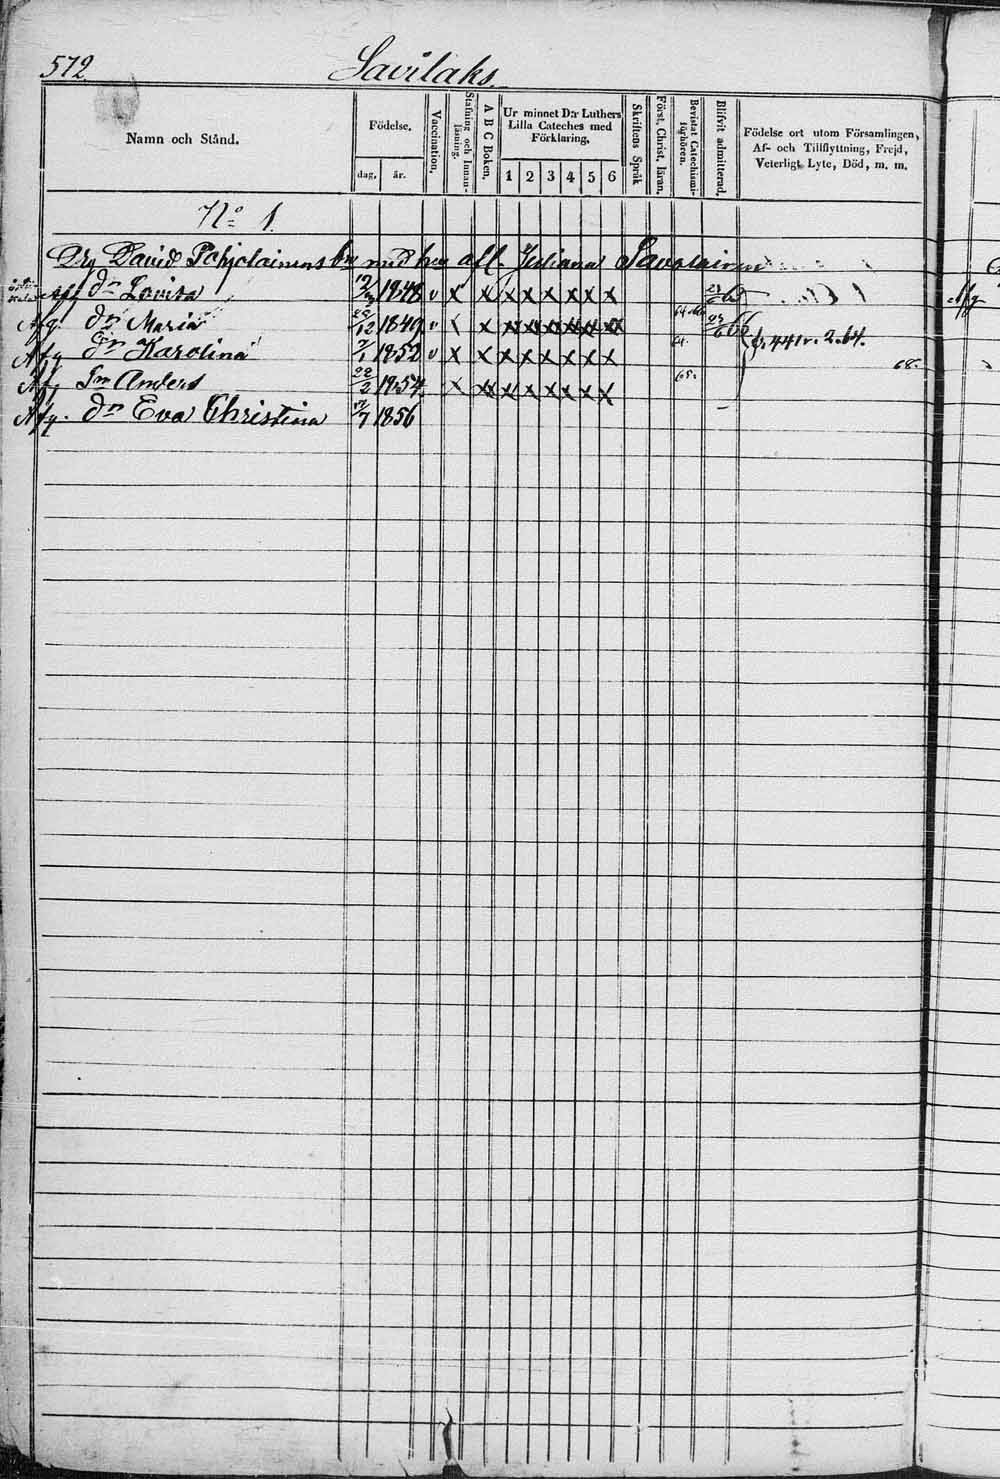 572.
Savilaks.
Namn och Stånd.
Födelse.
dag. år.
Vaccination.
Stafning och Innanläsning.
A B C Boken.
Ur minnet D:r Luthers Lilla Cateches med Förklaring.
1 2 3 4 5 6
Skriftens Språk
Först. Christ. läran.
Bevistat Catechismiförhören.
Blifvit admitterad.
Födelse ort utom Församlingen, Af- och Tillflyttning, Frejd, Veterligt Lyte, Död, m. m.
No 1.
Drg David Pohjolainens bn med hu afl. Juliana Savolainen
dr Lovisa 1848 v x x x x x x x x
Afg. dr Maria 12 1849 v x x x x x x x x 66
Afg dr Karolina 7/1 1852 v x x x x x x x x 64. p. 441 v. 2. 64.
Afg Sn Anders 22/2 1854 x x x x x x x x 65. 68.
Afg. dr Eva Christina 7 1856